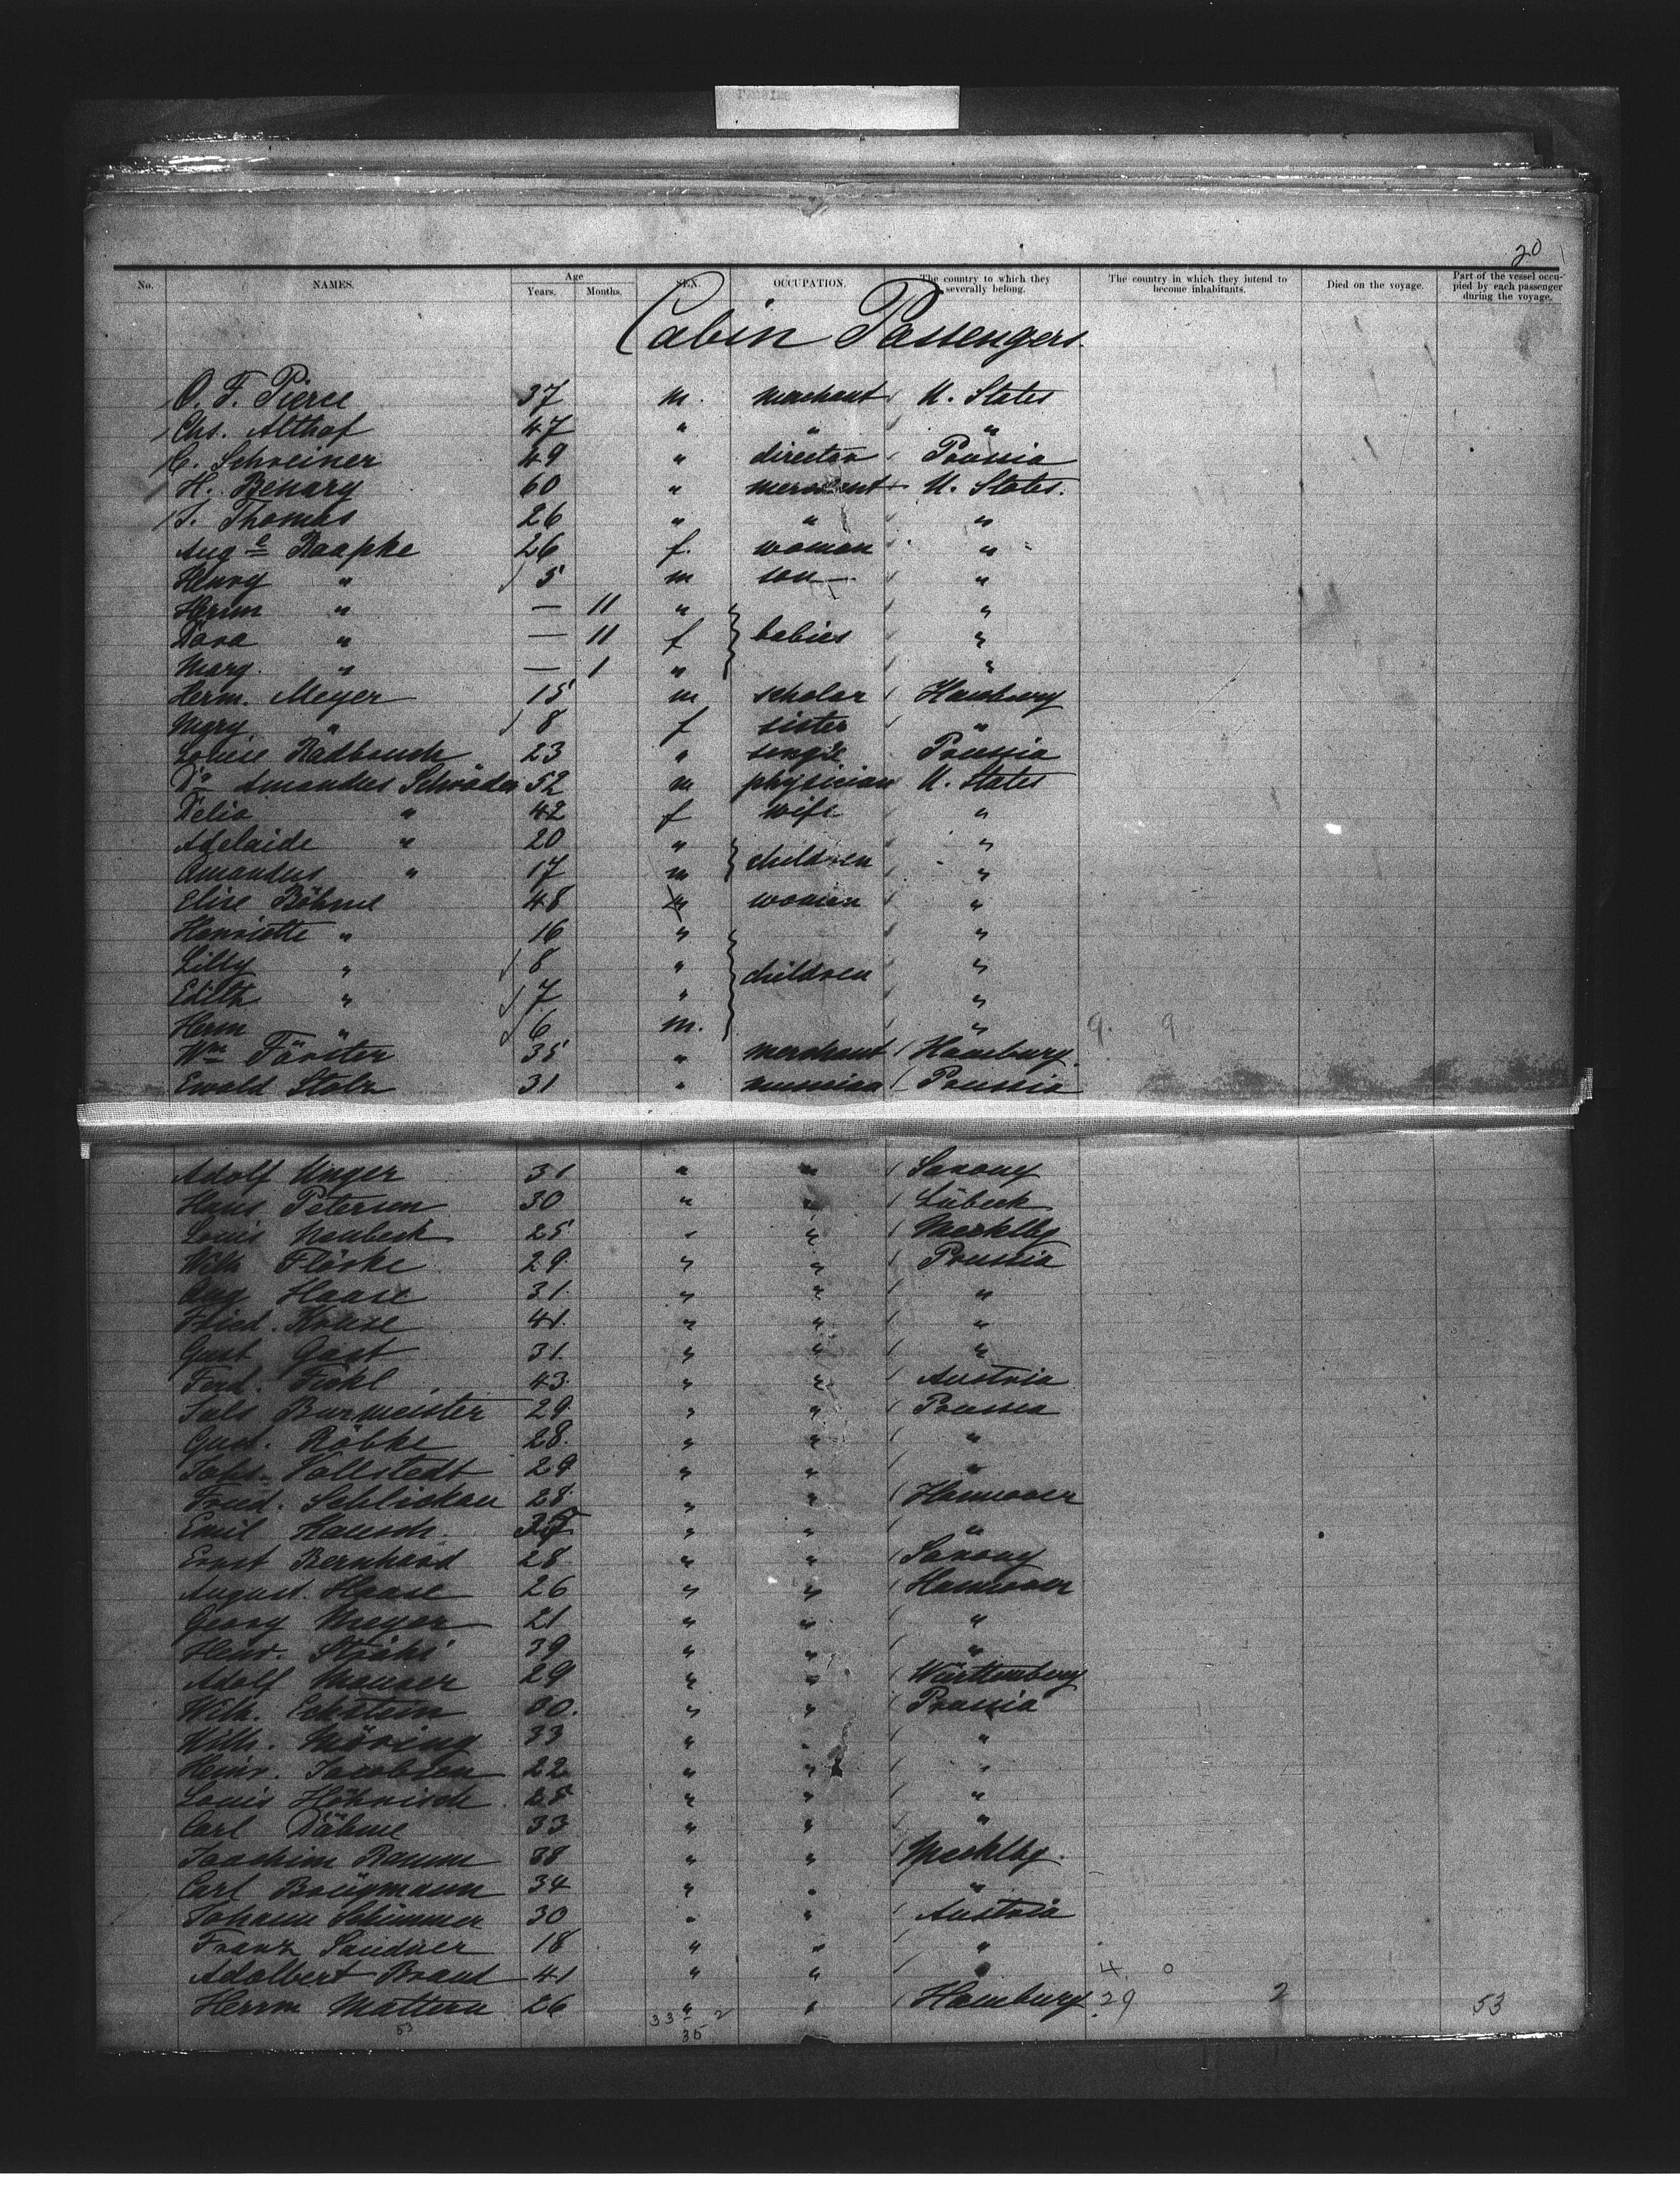 20
No. NAMES. Age Years. Months. SEX. OCCUPATION. The country to which they severally belong. The country in which they intend to become inhabitants. Died on the voyage. Part of the vessel occupied by each passenger during the voyage.
Cabin Passengers.
O. F. Pierce 37 m. merchant U. States
Chs. Althof 47 " " "
C. Schreiner 49 " director Prussia
H. Benary 60 " merchant U. States.
S. Thomas 26 " " "
Auge Raapke 26 f. woman "
Henry " 5 m son "
Herm " — 11 " "
Dora " — 11 f babies "
Marg. " — 1 " "
Herm. Meyer 15 m scholar Hamburg
Mary " 8 f sister "
Louise Radbruch 23 " single Prussia
Dr Amandus Schröder 52 m physician U. States
Delia " 42 f wife "
Adelaide " 20 " "
Amandus " 17 m children "
Elise Böhme 48 woman "
Henriette " 16 " "
Lilly " 8 " children "
Edith " 7 " "
Herm " 6 m. " 9. 9
Wm Förster 35 " merchant Hamburg.
Ewald Stolz 31 " musician Prussia
Adolf Unger 31 " " Saxony
Hans Petersen 30 " " Lübeck
Louis Naubeck 25 " " Mecklbg
Wilh Flöske 29. " " Prussia
Aug Haase 31. " " "
Fried. Kruse 41. " " "
Gust Gast 31. " " "
Ferd. Fickl 43. " " Austria
Burmeister 29. " " Prussia
Gust. Röbke 28. " " "
Johs. Vollstedt 29 " " "
Fried. Schlickau 28. " " Hannover
Emil Hausch. " " "
Ernst Bernhard 28 " " Saxony
August. Haase 26 " " Hannover
Georg Meyer 21 " " "
Henr. 39 " " "
Adolf Mauser 29 " " Württemberg
Wilh. Eckstein 30. " " Prussia
Wilh. Möring 33 " " "
Heinr. Jacobsen 22 " " "
Louis Höhnisch 25 " " "
Carl Däbme 33 " " "
Joachim Ramm 38 " " Mecklbg.
Carl Brügmann 34 " " "
Johann Schimmer 30 " " Austria
Franz Lindner 18 " " "
Adalbert Brand 41 " " " 4. 0
Herrm Mattern 26 " " Hamburg. 29 2 53
53 33 2
35